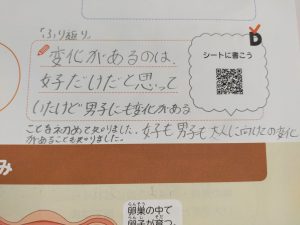 ふり返り
変化があるのは、
女子だけだと思って
いたけど男子にも変化がある
ことを初めて知りました。女子も男子も大人に向けての変化
があることも知りました。
シートに書こう
D
み
卵巣の中で
らんそう
卵子が育つ。
らんし